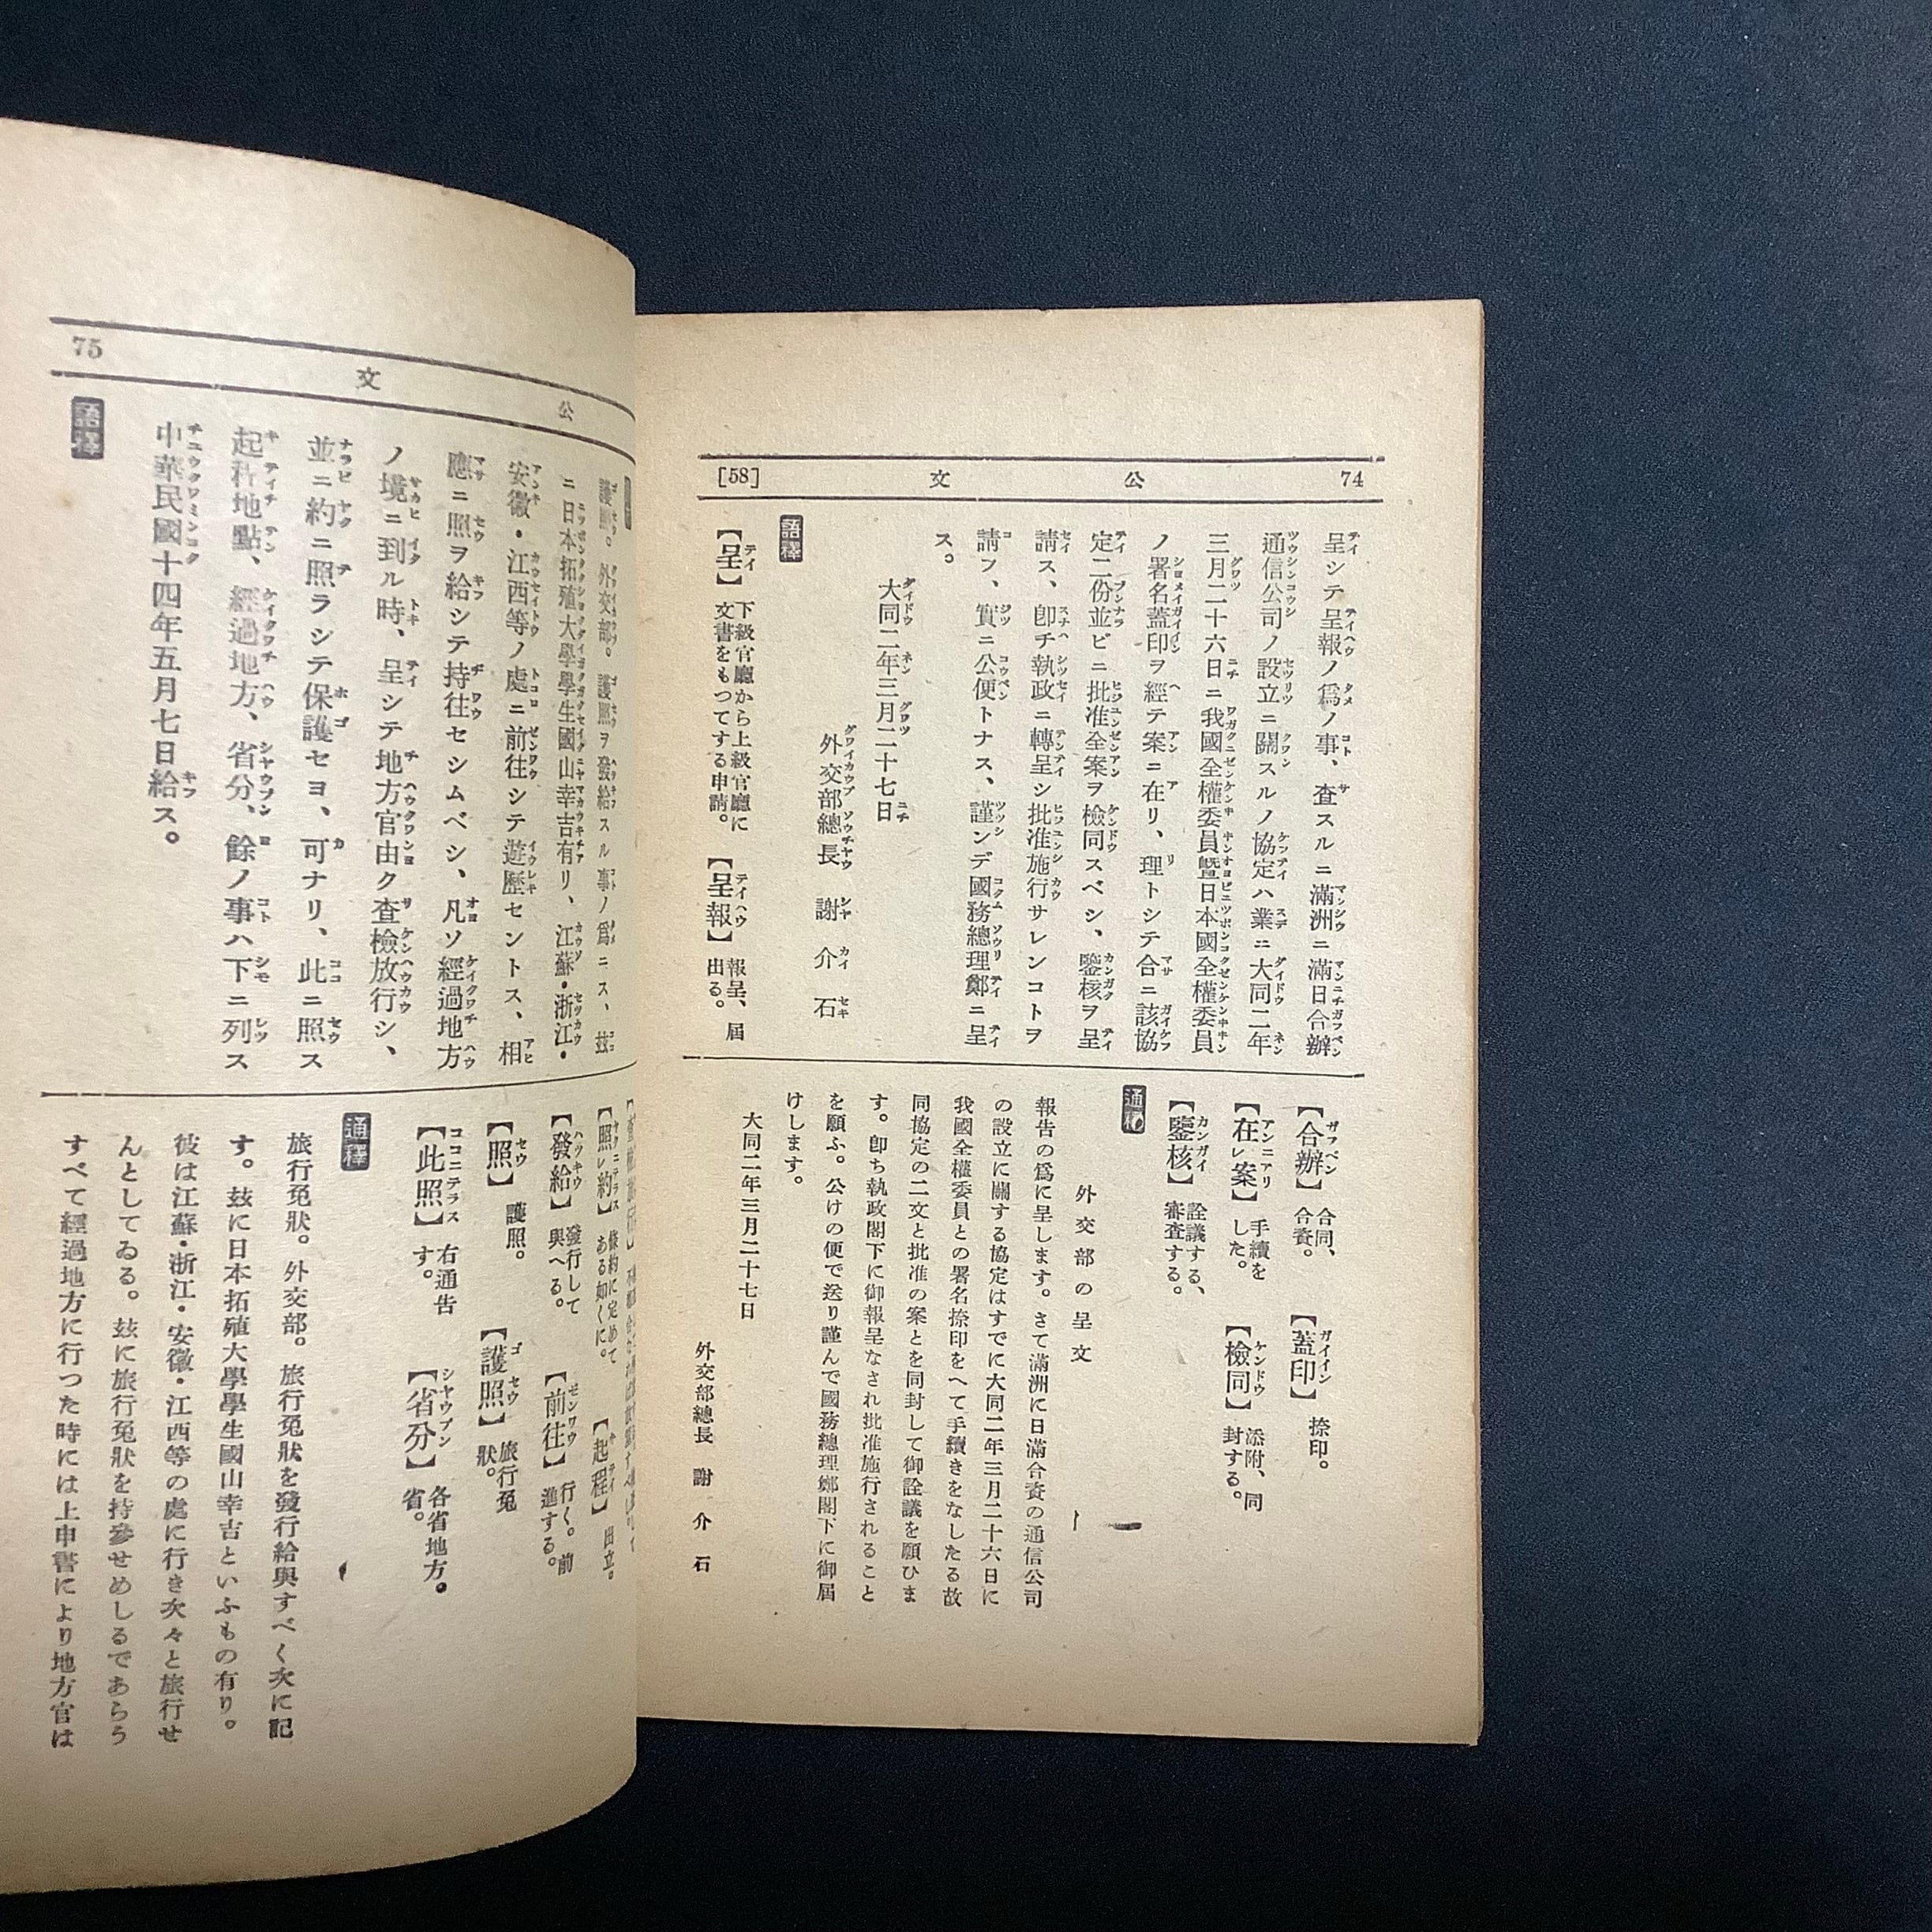 74
公文
[58]
呈シテ呈報ノ爲ノ事、査スルニ滿洲ニ滿日合辦
通信公司ノ設立ニ關スルノ協定ハ業ニ大同二年
三月二十六日ニ我國全權委員曁日本國全權委員
ノ署名蓋印ヲ經テ案ニ在リ、理トシテ合ニ該協
定二份並ビニ批准全案ヲ檢同スベシ、鑒核ヲ呈
請ス、卽チ執政ニ轉呈シ批准施行サレンコトヲ
請フ、實ニ公便トナス、謹ンデ國務總理鄭ニ呈
ス。
大同二年三月二十七日
外交部總長 謝介石
語釋
【呈】下級官廳から上級官廳に文書をもつてする申請。【呈報】報呈、屆出る。
【合辦】合同、合資。【蓋印】捺印。
【在レ案】手續をした。【檢同】添附、同封する。
【鑒核】詮議する、審査する。
通釋
外交部の呈文
報告の爲に呈します。さて滿洲に日滿合資の通信公司
の設立に關する協定はすでに大同二年三月二十六日に
我國全權委員との署名捺印をへて手續きをなしたる故
同協定の二文と批准の案とを同封して御詮議を願ひま
す。卽ち執政閣下に御報呈なされ批准施行されること
を願ふ。公けの便で送り謹んで國務總理鄭閣下に御屆
けします。
大同二年三月二十七日
外交部總長 謝介石
公文
75
護照。外交部。護照ヲ發給スル事ノ爲ニス、玆
ニ日本拓殖大學學生國山幸吉有リ、江蘇・浙江・
安徽・江西等ノ處ニ前往シテ遊歷セントス、相
應ニ照ヲ給シテ持往セシムベシ、凡ソ經過地方
ノ境ニ到ル時、呈シテ地方官由ク査檢放行シ、
並ニ約ニ照ラシテ保護セヨ、可ナリ、此ニ照ス
起程地點、經過地方、省分、餘ノ事ハ下ニ列ス
中華民國十四年五月七日給ス。
語釋
【照レ約】條約に定めてある如くに。【起程】出立。
【發給】發行して與へる。【前往】行く。前進する。
【照】護照。【護照】旅行免狀。
【此照】右通告す。【省分】各省地方。省。
通釋
旅行免狀。外交部。旅行免狀を發行給與すべく次に記
す。玆に日本拓殖大學學生國山幸吉といふもの有り。
彼は江蘇・浙江・安徽・江西等の處に行き次々と旅行せ
んとしてゐる。玆に旅行免狀を持參せめしるであらう
すべて經過地方に行つた時には上申書により地方官は